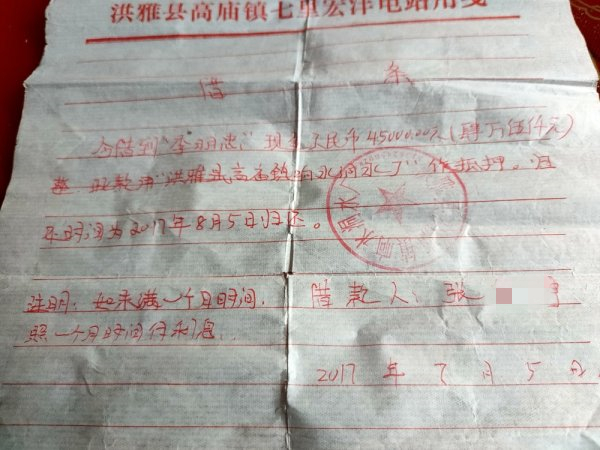 洪雅县高庙镇七里宏洋电站用笺
借 条
今借到“李明忠”现金人民币45000.00元(肆万伍仟元)
借款用“洪雅县高庙镇响水洞水厂”作抵押。且
还时间为2017年8月5日归还。
注明:如未满一个月时间,
照一个月时间付利息..
借款人:张
2017年7月5日